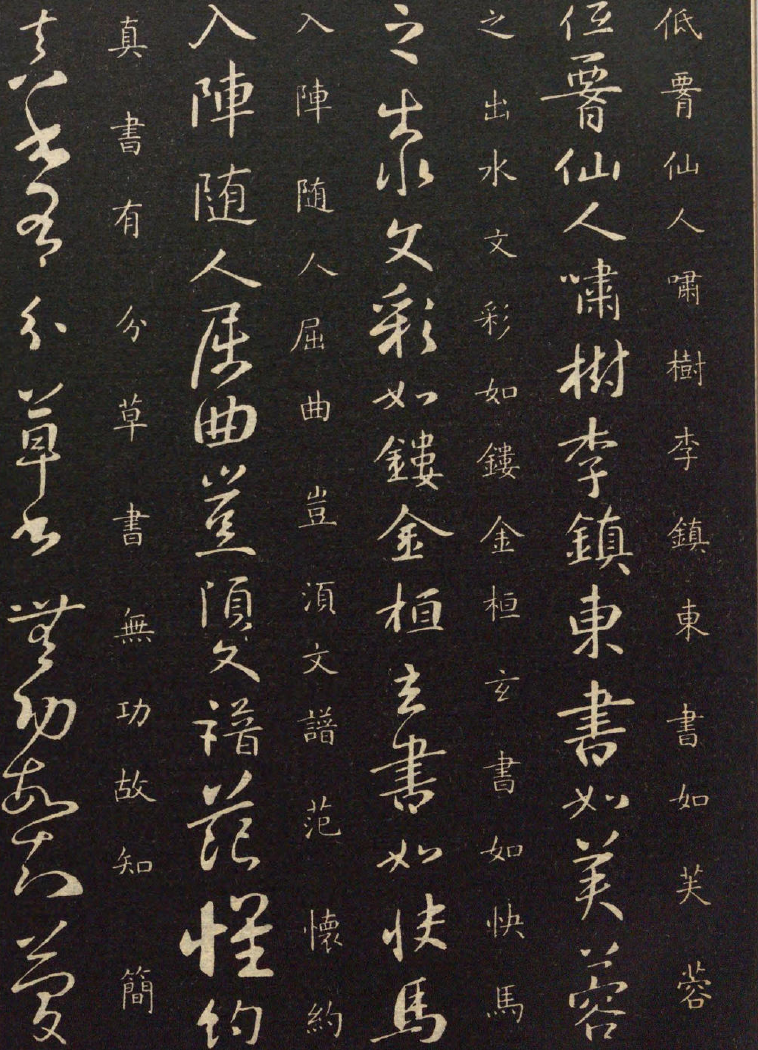 低㬱仙人嘯樹李鎮東書如芙蓉
低㬱仙人嘯樹李鎮東書如芙蓉
之出水文彩如鏤金桓玄書如快馬
之出水文彩如鏤金桓玄書如快馬
入陣随人屈曲豈湏文譜范懷約
入陣随人屈曲豈湏文譜范懷約
真書有分草書無功故知簡
真書有分草書無功故知簡